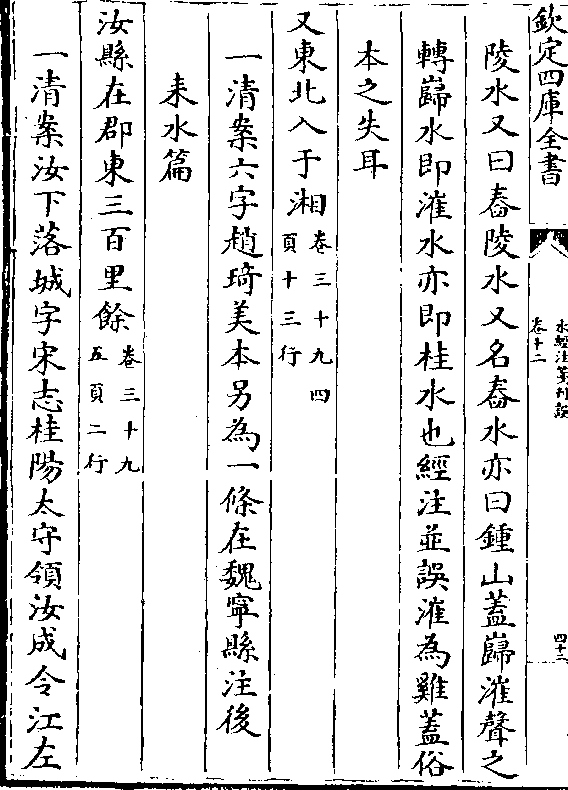 欽定四庫全書
水經注箋刊誤
卷十二
四十二
陵水又曰舂陵水又名舂水亦曰鍾山蓋巋漼聲之
轉巋水即漼水亦即桂水也經注並誤漼為雞蓋俗
本之失耳
又東北入于湘卷三十九四
頁十三行
一清案六字趙琦美本另為一條在魏寧縣注後
耒水篇
汝縣在郡東三百里餘卷三十九
五頁二行
一清案汝下落城字宋志桂陽太守領汝成令江左